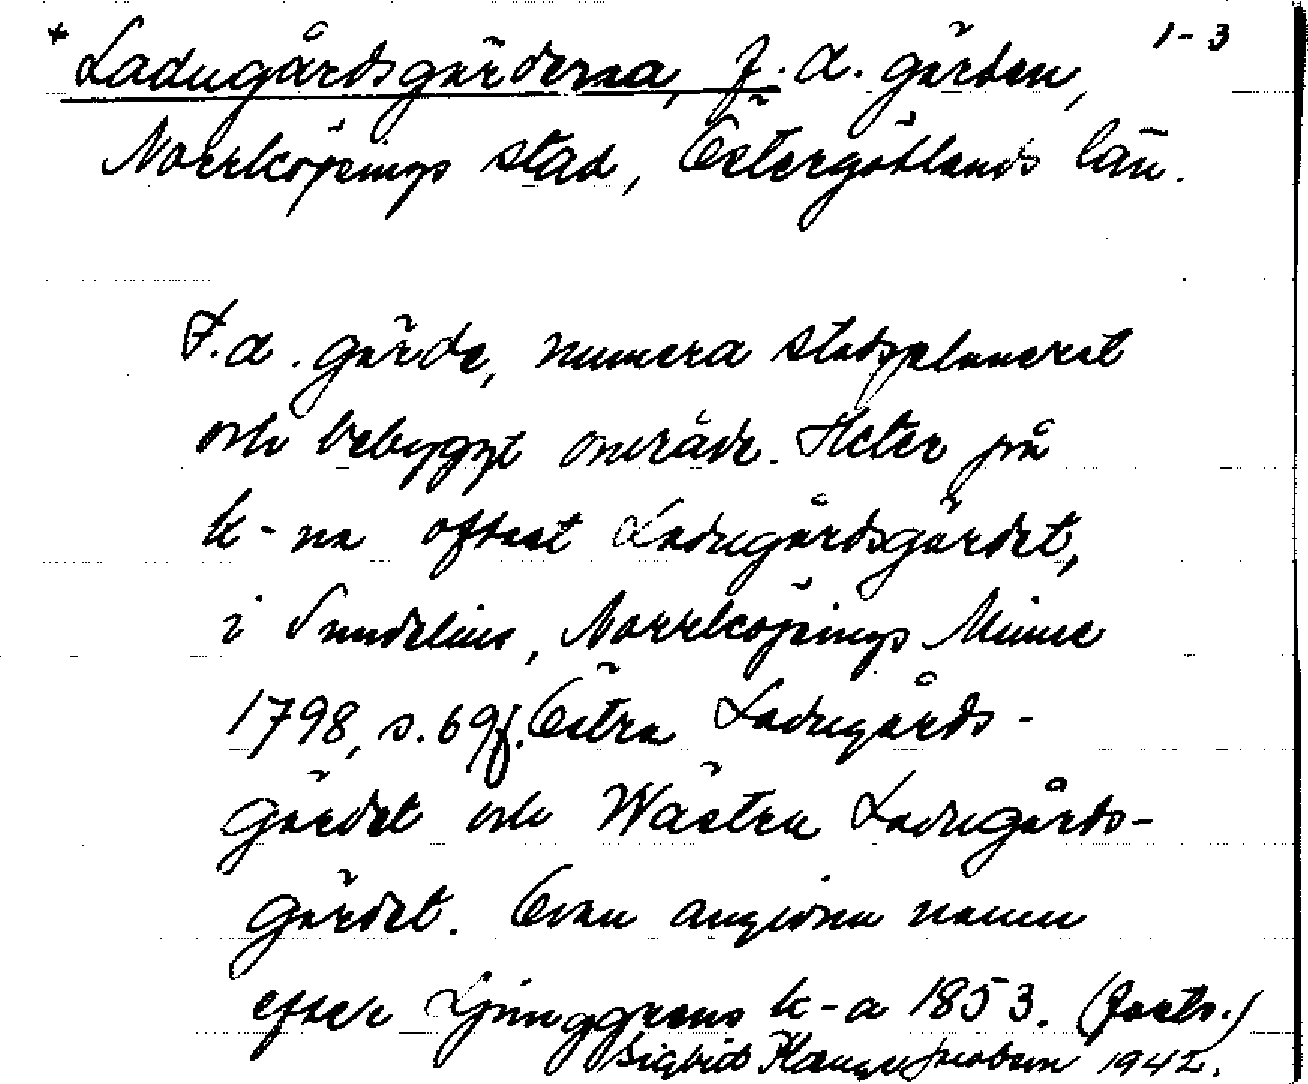 * Ladugårdsgärderna, f. d. gärden, 1-3
Norrköpings stad, Östergötlands län.
F. d. gärde, numera stadsplanerat
och bebyggt område. Heter på
k-na oftast Ladugårdsgärdet,
i Sundelius, Norrköpings Minne
1798, s. 69f. Östra Ladugårds-
gärdet och Wästra Ladugårds-
gärdet. Ovan angivna namn
efter Ljunggrens k-a 1853. (forts.)
Sigbrit 1942.